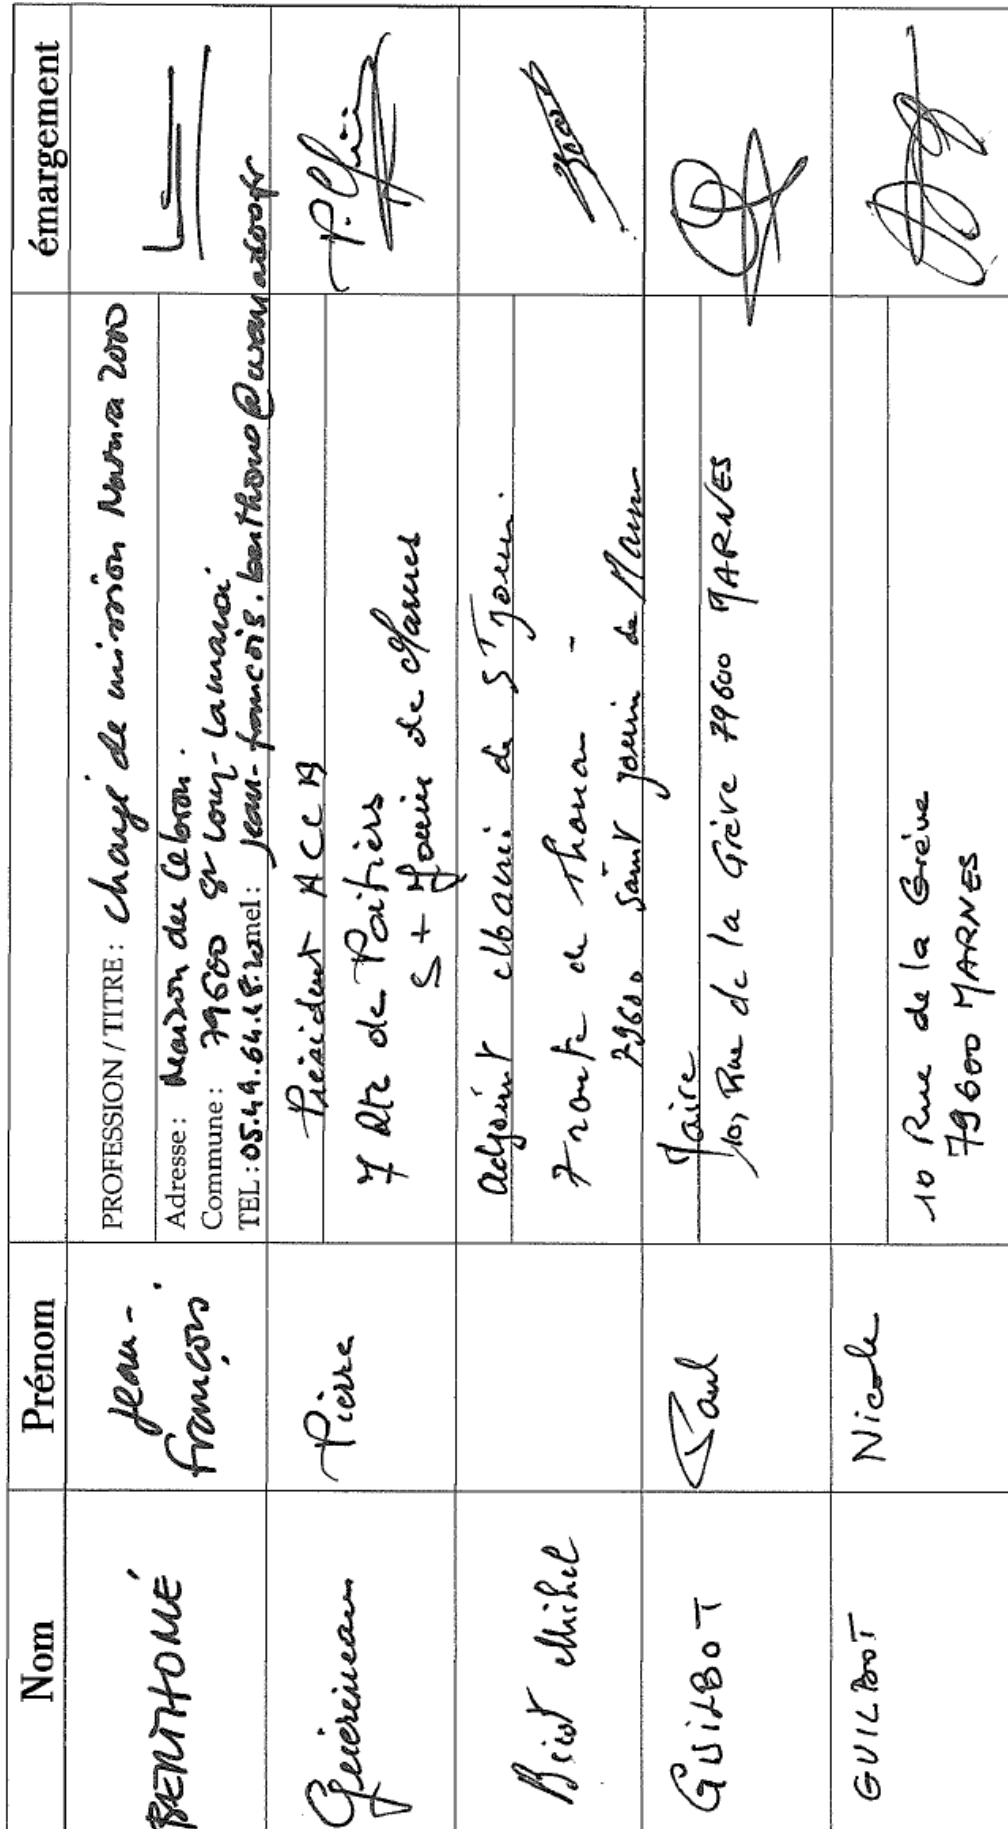 Nom Prénom émargement
BERTHOMÉ
Jean-
François
PROFESSION / TITRE : chargé de mission Natura 2000
Adresse : Maison du Cébron.
Commune : 79600 St Loup-Lamairé
TEL : 05.49.64. mel : jean-francois.berthome@wanadoo.fr
Pierre
Président ACCA
7 Rte de Poitiers
St Jouin de Marnes
P.
Michel
adjoint Mairie de St Jouin.
7 route de Thouars -
79600 saint jouin de Marnes
GUILBOT
Paul
Maire
10, Rue de la Grève 79600 MARNES
GUILBOT
Nicole
10 Rue de la Grève
79600 MARNES